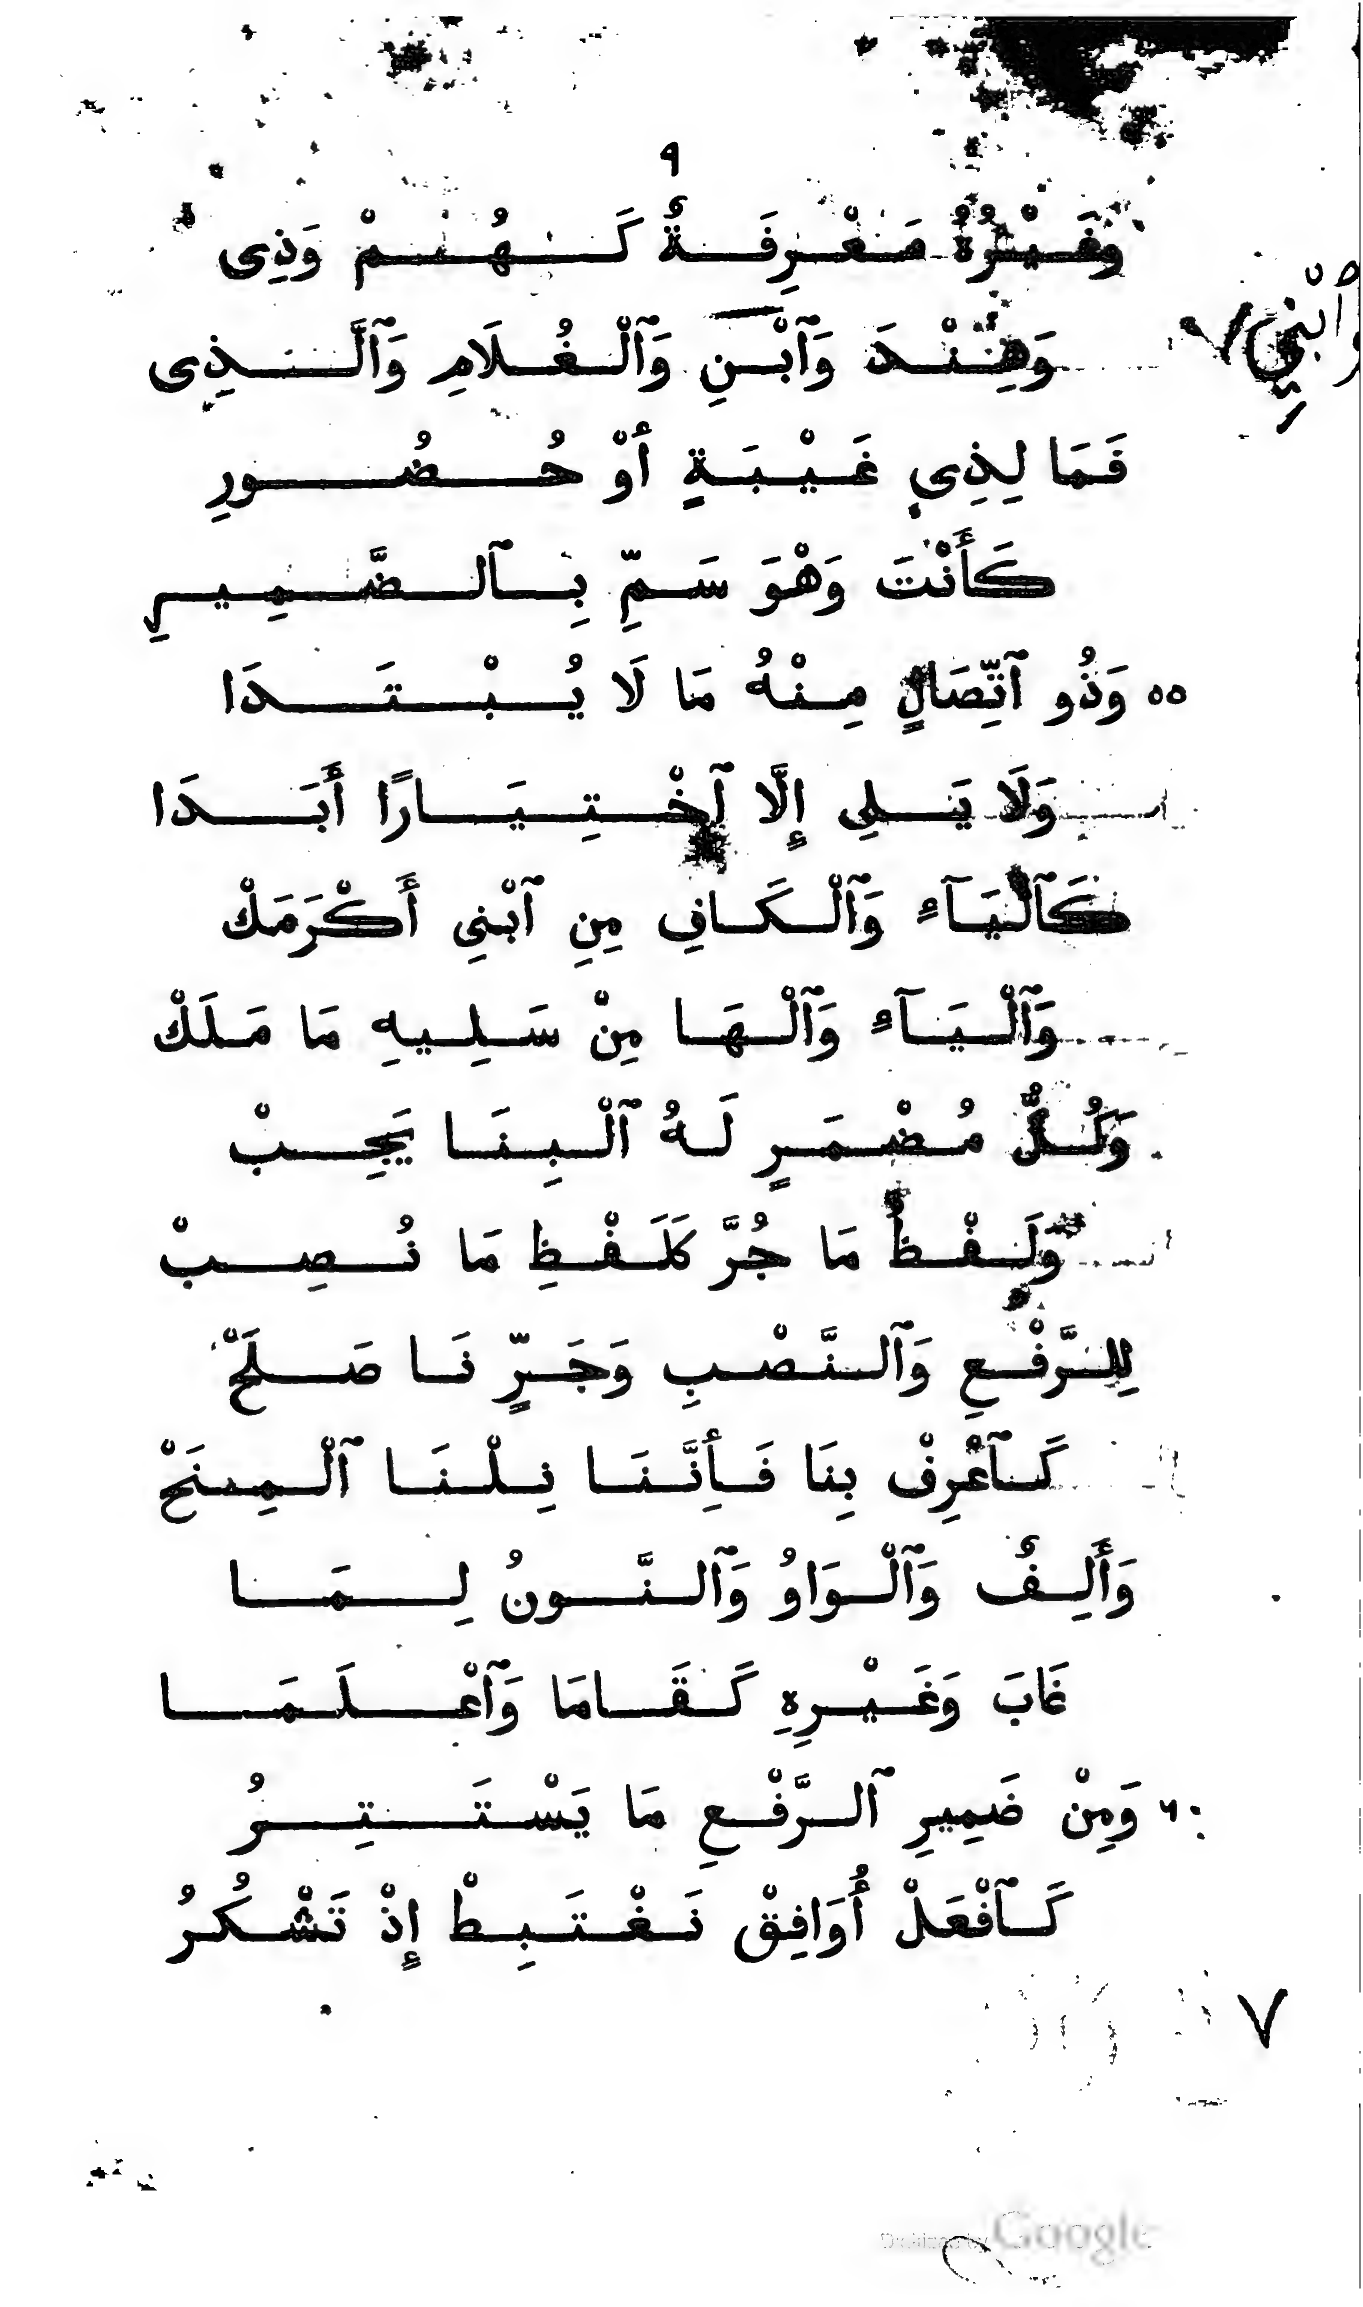 ٩
وَغَيْرُهُ مَعْرِفَةٌ كَهُمْ وَذِى
وَهِنْدَ وَٱبْنِ وَٱلْغُلَامِ وَٱلَّذِى
وَٱبْنِي
فَمَا لِذِى غَيْبَةٍ أَوْ حُضُورِ
كَأَنْتَ وَهْوَ سَمِّ بِٱلضَّمِيرِ
٥٥ وَذُو ٱتِّصَالٍ مِنْهُ مَا لَا يُبْتَدَا
وَلَا يَلِى إِلَّا ٱخْتِيَارًا أَبَدَا
كَٱلْيَآءِ وَٱلْكَافِ مِنِ ٱبْنِى أَكْرَمَكْ
وَٱلْيَآءِ وَٱلْهَا مِنْ سَلِيهِ مَا مَلَكْ
وَكُلُّ مُضْمَرٍ لَهُ ٱلْبِنَا يَجِبْ
وَلَفْظُ مَا جُرَّ كَلَفْظِ مَا نُصِبْ
لِلرَّفْعِ وَٱلنَّصْبِ وَجَرٍّ نَا صَلَحْ
كَٱعْرِفْ بِنَا فَأِنَّنَا نِلْنَا ٱلْمِنَحْ
وَأَلِفٌ وَٱلْوَاوُ وَٱلنَّونُ لِمَا
غَابَ وَغَيْرِهِ كَقَامَا وَٱعْلَمَا
٦٠ وَمِنْ ضَمِيرِ ٱلرَّفْعِ مَا يَسْتَتِرُ
كَٱفْعَلْ أُوَافِقْ نَغْتَبِطْ إِذْ تَشْكُرُ
٧
Digitized by Google